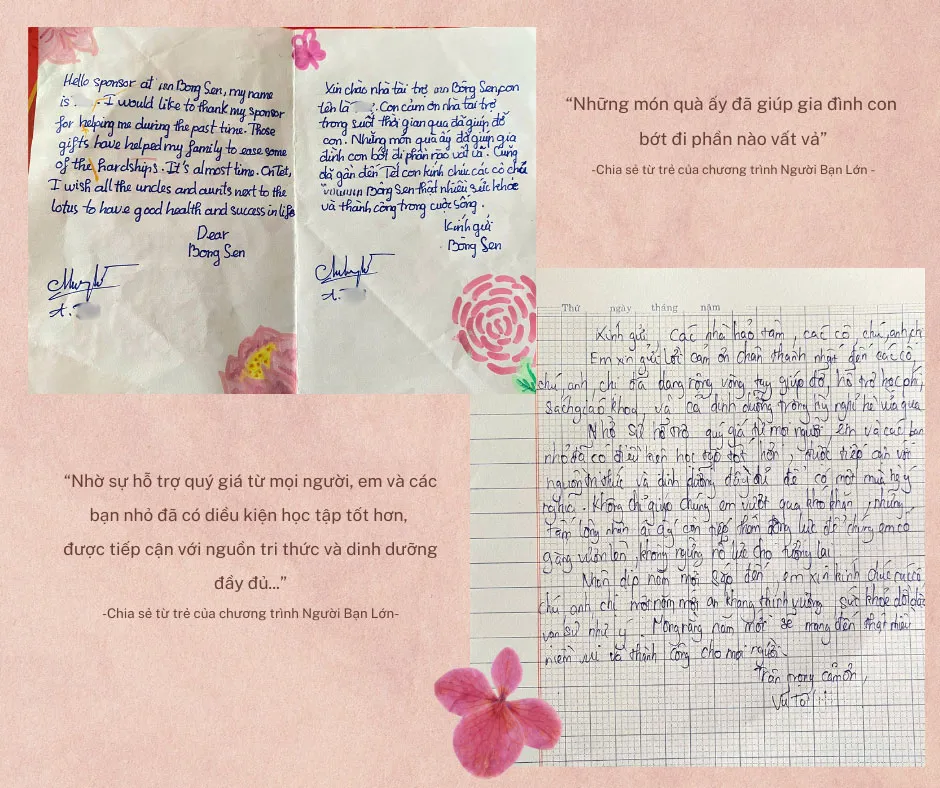 Hello sponsor at Bông Sen, my name
is . I would like to thank my sponsor
for helping me during the past time. Those
gifts have helped my family to ease some
of the hardships. It's almost time. On Tet,
I wish all the uncles and aunts next to the
lotus to have good health and success in life
Dear
Bông Sen
Xin chào nhà tài trợ Bông Sen, con
tên là . Con cảm ơn nhà tài trợ
trong suốt thời gian qua đã giúp đỡ
con. Những món quà ấy đã giúp gia
đình con bớt đi phần nào vất vả. Cũng
đã gần đến Tết con kính chúc các cô chú
Bông Sen thật nhiều sức khỏe
và thành công trong cuộc sống.
Kính gửi
Bông Sen
“Những món quà ấy đã giúp gia đình con
bớt đi phần nào vất vả”
-Chia sẻ từ trẻ của chương trình Người Bạn Lớn -
Thứ ngày tháng năm
Kính gửi, các nhà hảo tâm, các cô chú, anh chị
Em xin gửi lời cảm ơn chân thành nhất đến các cô
chú anh chị đã dang rộng vòng tay giúp đỡ, hỗ trợ học phí,
sách giáo khoa, và cả dinh dưỡng trong kỳ nghỉ hè vừa qua
Nhờ sự hỗ trợ quý giá từ mọi người, em và các bạn
nhỏ đã có điều kiện học tập tốt hơn, được tiếp cận với
nguồn tri thức và dinh dưỡng đầy đủ để có một mùa hè ý
nghĩa. Không chỉ giúp chúng em vượt qua khó khăn, những
tấm lòng nhân ái ấy còn tiếp thêm động lực để chúng em cố
gắng vươn lên, không ngừng nỗ lực cho tương lai
Nhân dịp năm mới sắp đến, em xin kính chúc các cô,
chú anh chị một năm mới an khang thịnh vượng, sức khỏe dồi dào
vạn sự như ý. Mong rằng năm mới sẽ mang đến thật nhiều
niềm vui và thành công cho mọi người.
Trân trọng cảm ơn,
“Nhờ sự hỗ trợ quý giá từ mọi người, em và các
bạn nhỏ đã có diều kiện học tập tốt hơn,
được tiếp cận với nguồn tri thức và dinh dưỡng
đầy đủ...”
-Chia sẻ từ trẻ của chương trình Người Bạn Lớn-